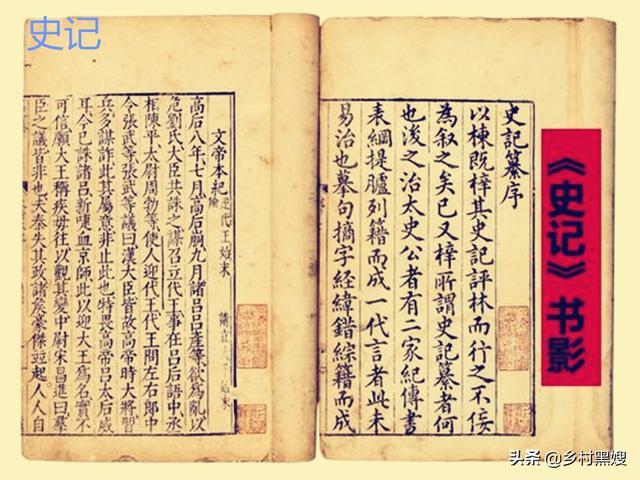 史记
史記纂序
以棟既梓其史記評林而行之不佞
為叙之矣已又梓所謂史記纂者何
也後之治太史公者有二家紀傳書
表綱提臚列籍而成一代言者此未
易治也摹句摘字經緯錯綜籍而成
文帝本紀 代王始末
高后八年七月高后崩九月諸呂呂產等欲為亂以
危劉氏大臣共誅之謀召立代王事在呂后語中丞
相陳平太尉周勃等使人迎代王代王問左右郎中
令張武等張武等議曰漢大臣皆故高帝時大將習
兵多謀詐此其屬意非止此也特畏高帝呂太后威
耳今已誅諸呂新喋血京師此以迎大王為名實不
可信願大王稱疾毋往以觀其變中尉宋昌進曰羣
臣之議皆非也夫秦失其政諸矦豪傑竝起人人自
《史记》书影
头条 @乡村黑嫂